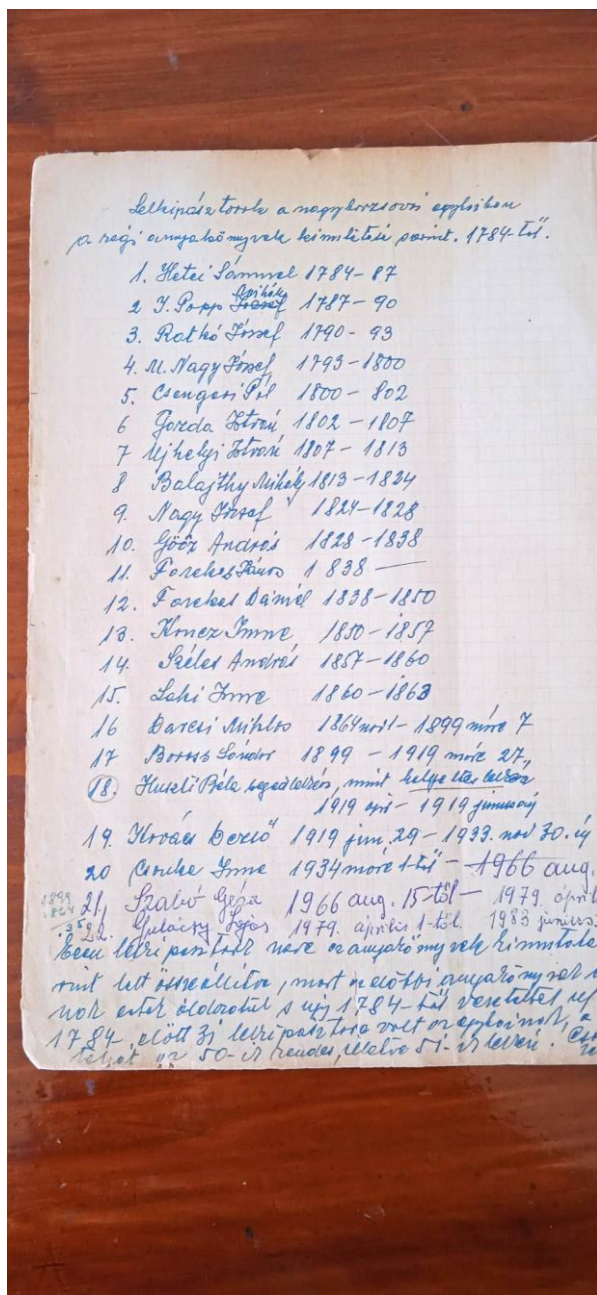 Lelkipásztorok a nagyborzsovai egyházban
a régi anyakönyvek kimutatása szerint. 1784-től.
1. Hetei Sámuel 1784-87
2 I. Popp József Mihály 1787-90
3. Ratkó József 1790-93
4. M. Nagy József 1793-1800
5. Csengeri Pál 1800-802
6 Gozda István 1802-1807
7 Ujhelyi István 1807-1813
8 Balajthy Mihály 1813-1824
9. Nagy József 1824-1828
10. Göőz András 1828-1838
11. Farekas János 1838 —
12. Farekas Dániel 1838-1850
13. Koncz Imre 1850-1857
14. Széles András 1857-1860
15. Laki Imre 1860-1863
16 Darcsi Miklós 1864 - 1899 márc 7
17 Boross Sándor 1899 - 1919 márc 27,
18. Huszti Béla segédlelkész, mint helyettes lelkész
1919 apr - 1919
19. Kovács Dezső 1919 jun. 29 - 1933. nov 30. ig
20 Csuka Imre 1934 márc 1-től - 1966 aug.
21, Szabó Géza 1966 aug. 15-től - 1979. ápril
1899
1864
35
22. Gulácsy Lajos 1979. április 1-től. 1983 június
Ezen lelkipásztorok az anyakönyvek kimutatása
rint lett összeállítva, mert az előbbi anyakönyvek
s így 1784-től vezettetett
1784, előtt 31 lelkipásztora volt az egyháznak,
tehát az 50-ik rendes, illetve 51-ik lelkész.